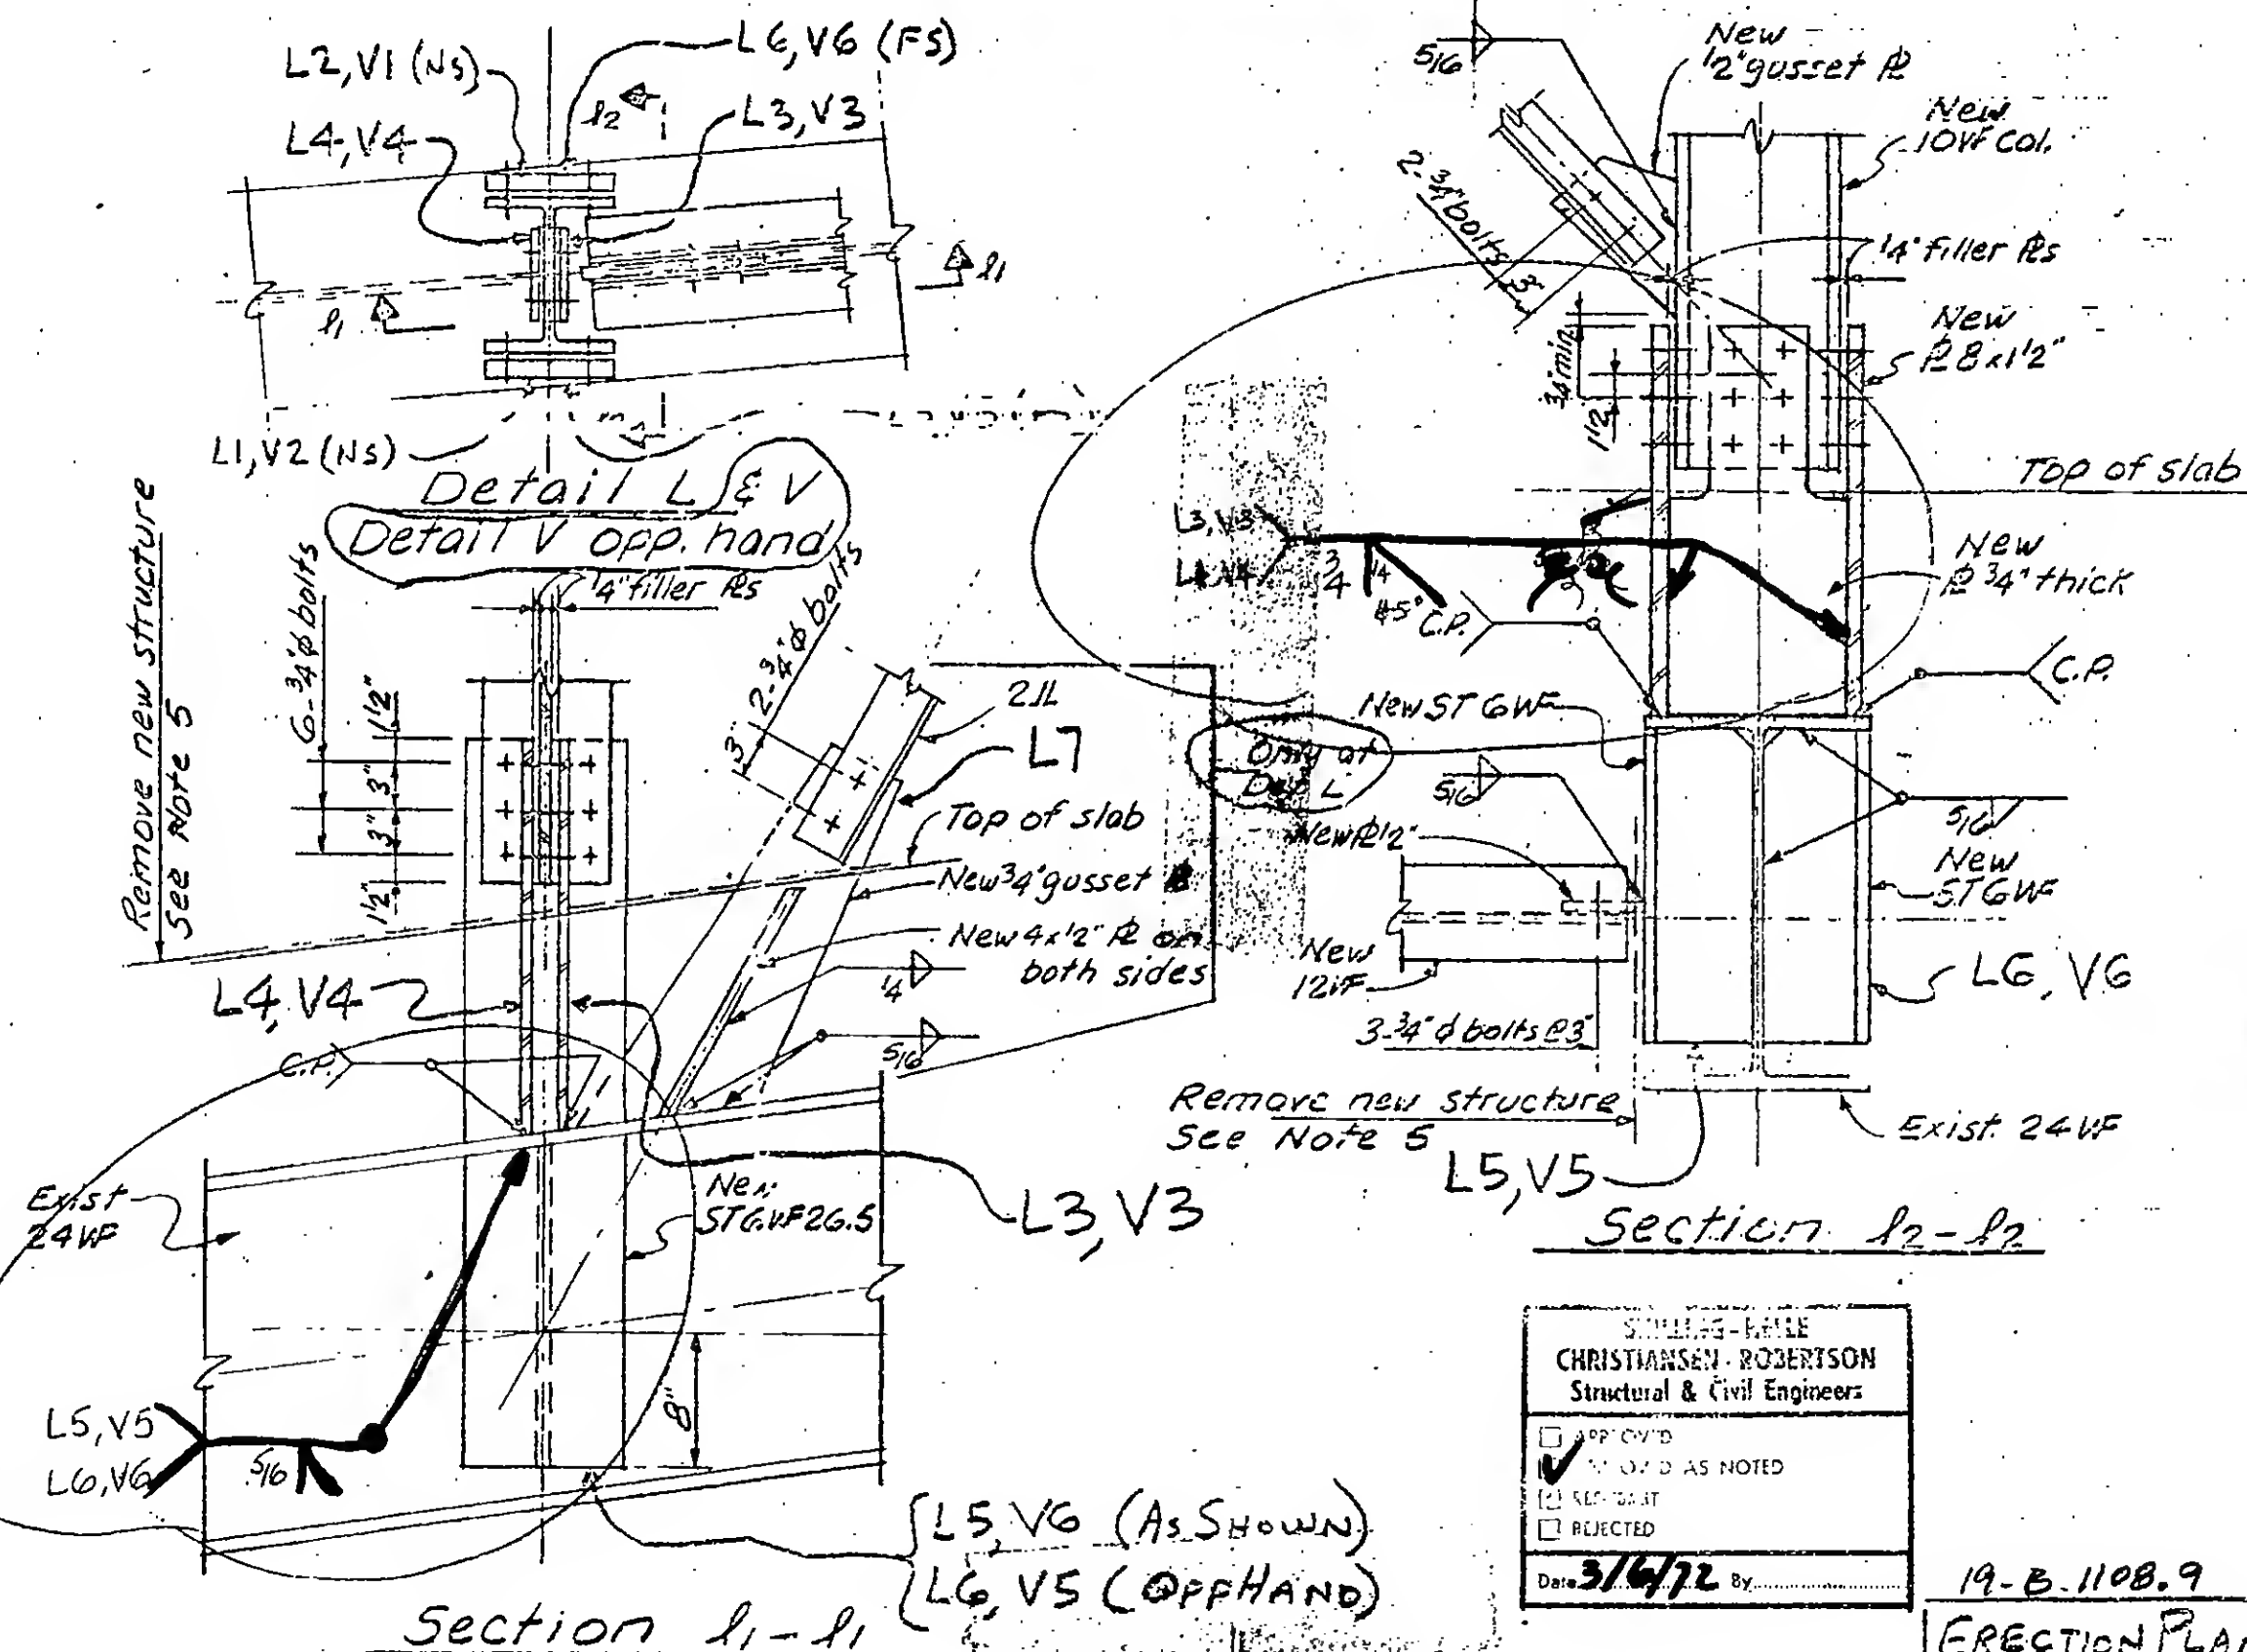 L2, V1 (NS)
L6, V6 (FS)
L4, V4
L3, V3
l2
l1
l1
L1, V2 (NS)
Detail L & V
Detail V opp. hand
Remove new structure
See Note 5
6-3/4"ϕ bolts
1/4" filler PLs
2-3/4"ϕ bolts
1 1/2"
3"
3"
1 1/2"
3"
L7
Top of slab
New 3/4" gusset
New 4x1/2" PL on
both sides
1/4
5/16
L4, V4
C.P.
Exist
24WF
New
ST6WF26.5
L3, V3
8"
L5, V5
L6, V6
5/16
L5, V6 (As Shown)
L6, V5 (Opp Hand)
Section l1-l1
5/16
New
1/2" gusset PL
New
10WF Col.
2-3/4"ϕ bolts
3"
1/4" filler PLs
New
PL 8x1 1/2"
3/4" min.
1 1/2
Top of slab
L3, V3
L4, V4
3/4
1/4
45°
C.P.
New
PL 3/4" thick
C.P.
New ST6WF
Only at
L
5/16
New PL 1/2"
5/16
New
ST6WF
New
12WF
L6, V6
3-3/4"ϕ bolts @3"
Remove new structure
See Note 5
Exist. 24WF
L5, V5
Section l2-l2
CHRISTIANSEN - ROBERTSON
Structural & Civil Engineers
AS NOTED
REJECTED
Date 3/6/72 By
19-B-1108.9
ERECTION PLAN